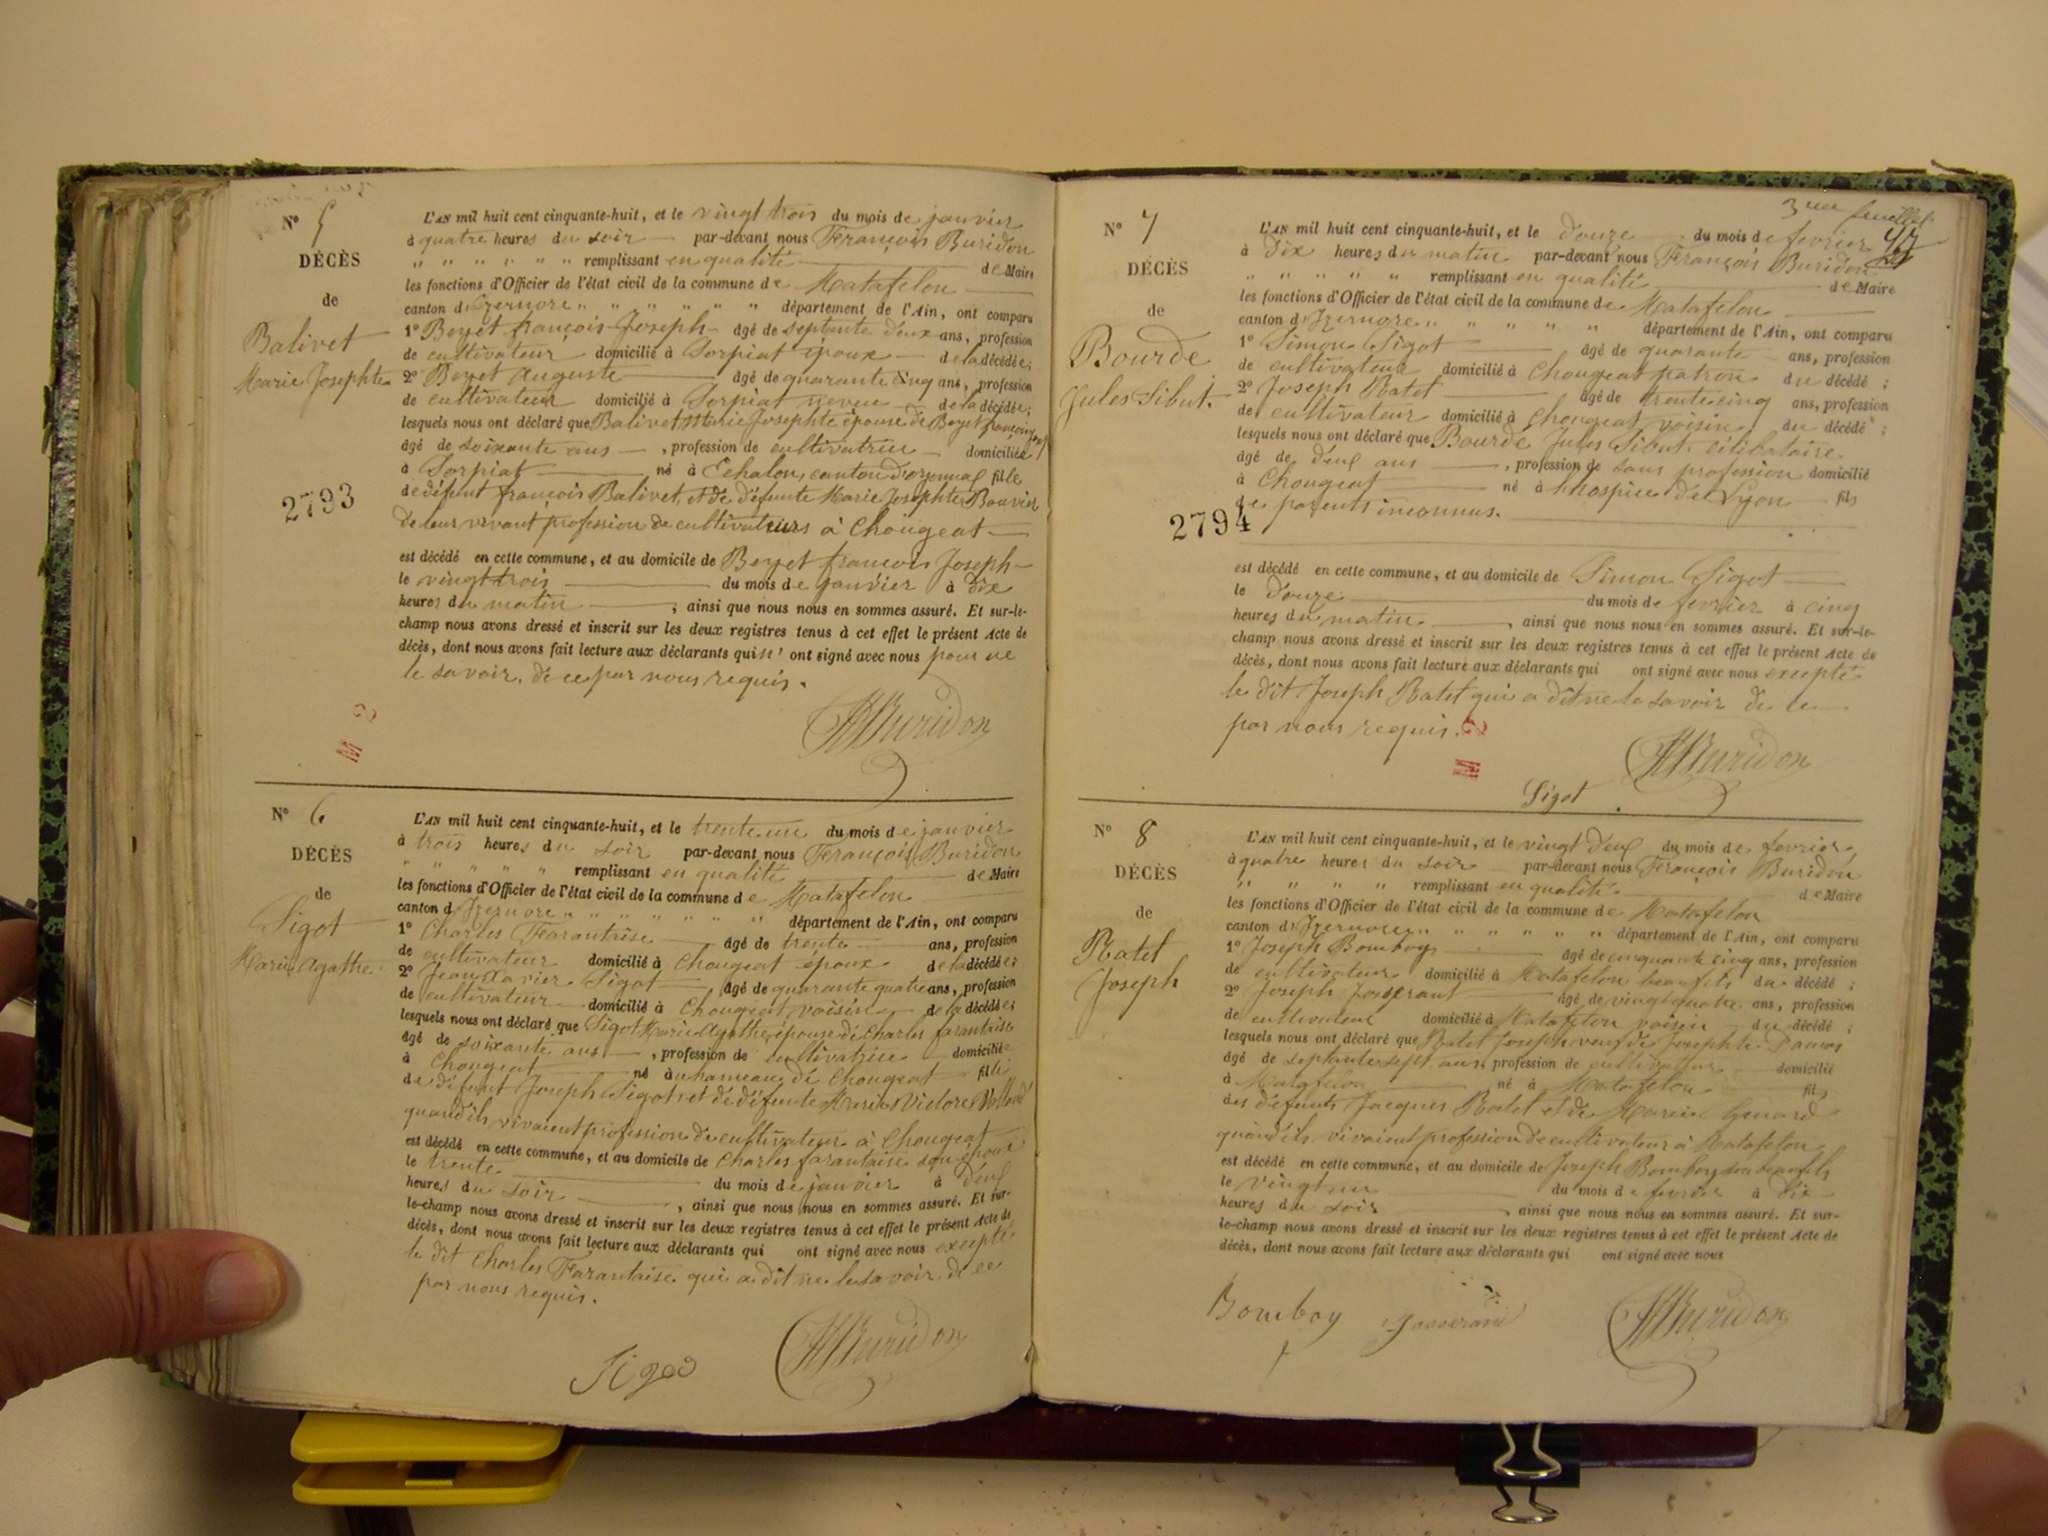 N° 5
DÉCÈS
de
Balivet
Marie Josephte
2793
L'AN mil huit cent cinquante-huit, et le vingt trois du mois de janvier
à quatre heures du soir par-devant nous François Buridon
" " " " " " remplissant en qualité de Maire
les fonctions d'Officier de l'état civil de la commune de Matafelon
canton d'Izernore " " " " " " département de l'Ain, ont comparu
1° Beyet françois Joseph âgé de septante deux ans, profession
de cultivateur domicilié à Sorpiat époux de la décédée;
2° Beyet Auguste âgé de quarante cinq ans, profession
de cultivateur domicilié à Sorpiat neveu de la décédée;
lesquels nous ont déclaré que Balivet Marie Josephte épouse de Beyet françois Jph
âgé de soixante ans, profession de cultivatrice domiciliée
à Sorpiat né à Echalon, canton d'oyonnax fille
de défunt françois Balivet, et de défunte Marie Josephte Bouvier
de leur vivant profession de cultivateurs à Chougeat
est décédé en cette commune, et au domicile de Beyet françois Joseph
le vingt trois du mois de janvier à dix
heures du matin, ainsi que nous nous en sommes assuré. Et sur-le-
champ nous avons dressé et inscrit sur les deux registres tenus à cet effet le présent Acte de
décès, dont nous avons fait lecture aux déclarants qui n' ont signé avec nous pour ne
le savoir, de ce par nous requis.
Buridon
N° 6
DÉCÈS
de
Sigot
Marie Agathe
L'AN mil huit cent cinquante-huit, et le trente un du mois de janvier
à trois heures du soir par-devant nous François Buridon
" " " " remplissant en qualité de Maire
les fonctions d'Officier de l'état civil de la commune de Matafelon
canton d'Izernore " " " " " " département de l'Ain, ont comparu
1° Charles Tarantaise âgé de trente ans, profession
de cultivateur domicilié à Chougeat époux de la décédée;
2° Jean Xavier Sigot âgé de quarante quatre ans, profession
de cultivateur domicilié à Chougeat voisin de la décédée;
lesquels nous ont déclaré que Sigot Marie Agathe, épouse de Charles Tarantaise
âgé de soixante ans, profession de cultivatrice domiciliée
à Chougeat né au hameau de Chougeat fille
de défunt Joseph Sigot, et de défunte Marie Victore
quand ils vivaient profession de cultivateur à Chougeat
est décédé en cette commune, et au domicile de Charles Tarantaise son époux
le trente du mois de janvier à deux
heures du soir, ainsi que nous nous en sommes assuré. Et sur-
le-champ nous avons dressé et inscrit sur les deux registres tenus à cet effet le présent Acte de
décès, dont nous avons fait lecture aux déclarants qui ont signé avec nous excepté
le dit Charles Tarantaise qui a dit ne le savoir de ce
par nous requis.
Sigot Buridon
3me feuillet
47
N° 7
DÉCÈS
de
Bourde
Jules Sibut.
2794
L'AN mil huit cent cinquante-huit, et le douze du mois de fevrier
à dix heures du matin par-devant nous François Buridon
" " " " " remplissant en qualité de Maire
les fonctions d'Officier de l'état civil de la commune de Matafelon
canton d'Izernore " " " " " département de l'Ain, ont comparu
1° Simon Sigot âgé de quarante ans, profession
de cultivateur domicilié à Chougeat patron du décédé;
2° Joseph Ratet âgé de trente cinq ans, profession
de cultivateur domicilié à Chougeat voisin du décédé;
lesquels nous ont déclaré que Bourde Jules Sibut célibataire
âgé de deux ans, profession de sans profession domicilié
à Chougeat né à hospice de Lyon fils
de parents inconnus.
est décédé en cette commune, et au domicile de Simon Sigot
le douze du mois de fevrier à cinq
heures du matin, ainsi que nous nous en sommes assuré. Et sur-le-
champ nous avons dressé et inscrit sur les deux registres tenus à cet effet le présent Acte de
décès, dont nous avons fait lecture aux déclarants qui ont signé avec nous excepté
le dit Joseph Ratet qui a dit ne le savoir de ce
par nous requis.
Buridon
Sigot
N° 8
DÉCÈS
de
Ratet
Joseph
L'AN mil huit cent cinquante-huit, et le vingt deux du mois de fevrier
à quatre heures du soir par-devant nous François Buridon
" " " " remplissant en qualité de Maire
les fonctions d'Officier de l'état civil de la commune de Matafelon
canton d'Izernore " " " " " " département de l'Ain, ont comparu
1° Joseph Bomboy âgé de cinquante cinq ans, profession
de cultivateur domicilié à Matafelon beau fils du décédé;
2° Joseph Josserant âgé de vingt quatre ans, profession
de cultivateur domicilié à Matafelon voisin du décédé;
lesquels nous ont déclaré que Ratet Joseph veuf de Josephte
âgé de septante sept ans profession de cultivateur domicilié
à Matafelon né à Matafelon fils
des défunts Jacques Ratet et de Marie
quand ils vivaient profession de cultivateur à Matafelon
est décédé en cette commune, et au domicile de Joseph Bomboy son beau fils
le vingt un du mois de fevrier à dix
heures du soir, ainsi que nous nous en sommes assuré. Et sur-
le-champ nous avons dressé et inscrit sur les deux registres tenus à cet effet le présent Acte de
décès, dont nous avons fait lecture aux déclarants qui ont signé avec nous
Bomboy Josserand Buridon